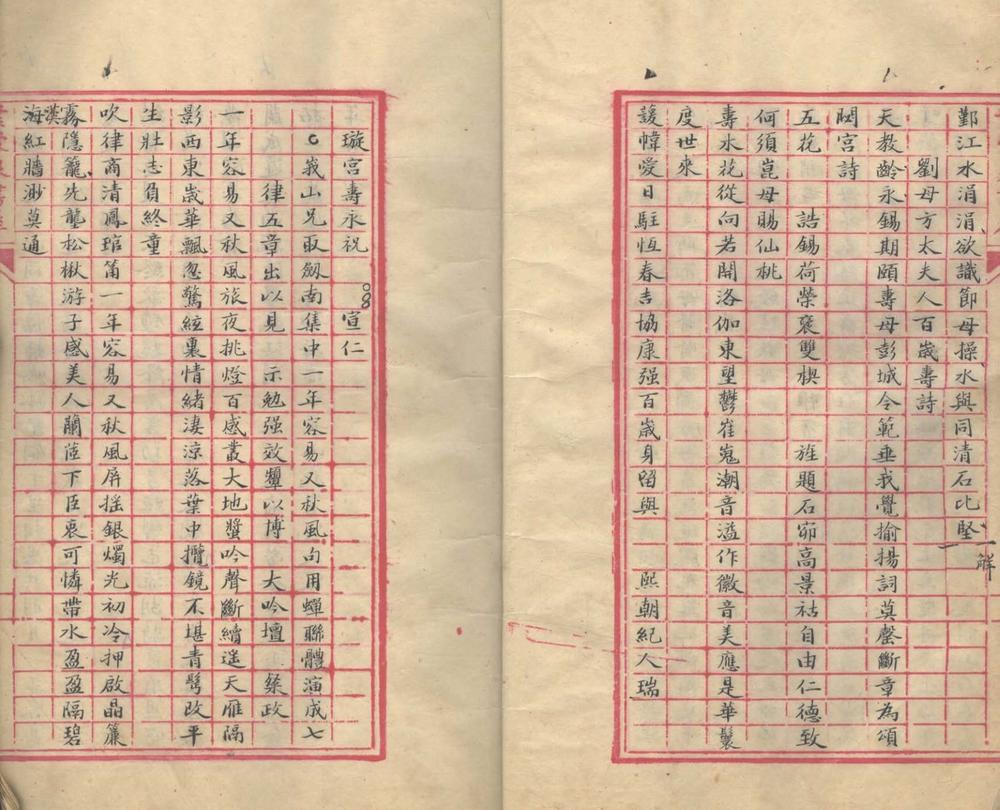 鄞江水涓涓欲識節母操水與同清石比堅
解
劉母方太夫人百歲壽詩
天教齡永錫期頤壽母彭城令範垂我覺揄揚詞莫罄斷章為頌
閟宮詩
五花 誥錫荷榮褒雙楔 旌題石窌高景祜自由仁德致
何須崑母賜仙桃
壽水花從向若開洛伽東望鬱崔嵬潮音溢作徽音美應是華鬘
度世來
諼幃愛日駐恆春吉協康强百歲身留與 熙朝紀人瑞
璇宮壽永祝 宣仁
峩山兄取劒南集中一年容易又秋風句用蟬聯體演成七
律五章出以見 示勉强效顰以博 大吟壇 粲政
一年容易又秋風旅夜挑燈百感叢大地蛩吟聲斷續遥天雁隔
影西東歲華飄忽驚絃裏情緒淒涼落葉中攬鏡不堪青鬂改平
生壯志負終童
吹律商清鳳琯筩一年容易又秋風屏摇銀燭光初冷押啟晶簾
霧隱籠先壟松楸游子感美人蘭茝下臣衷可憐帶水盈盈隔碧
海紅牆渺莫通
漠